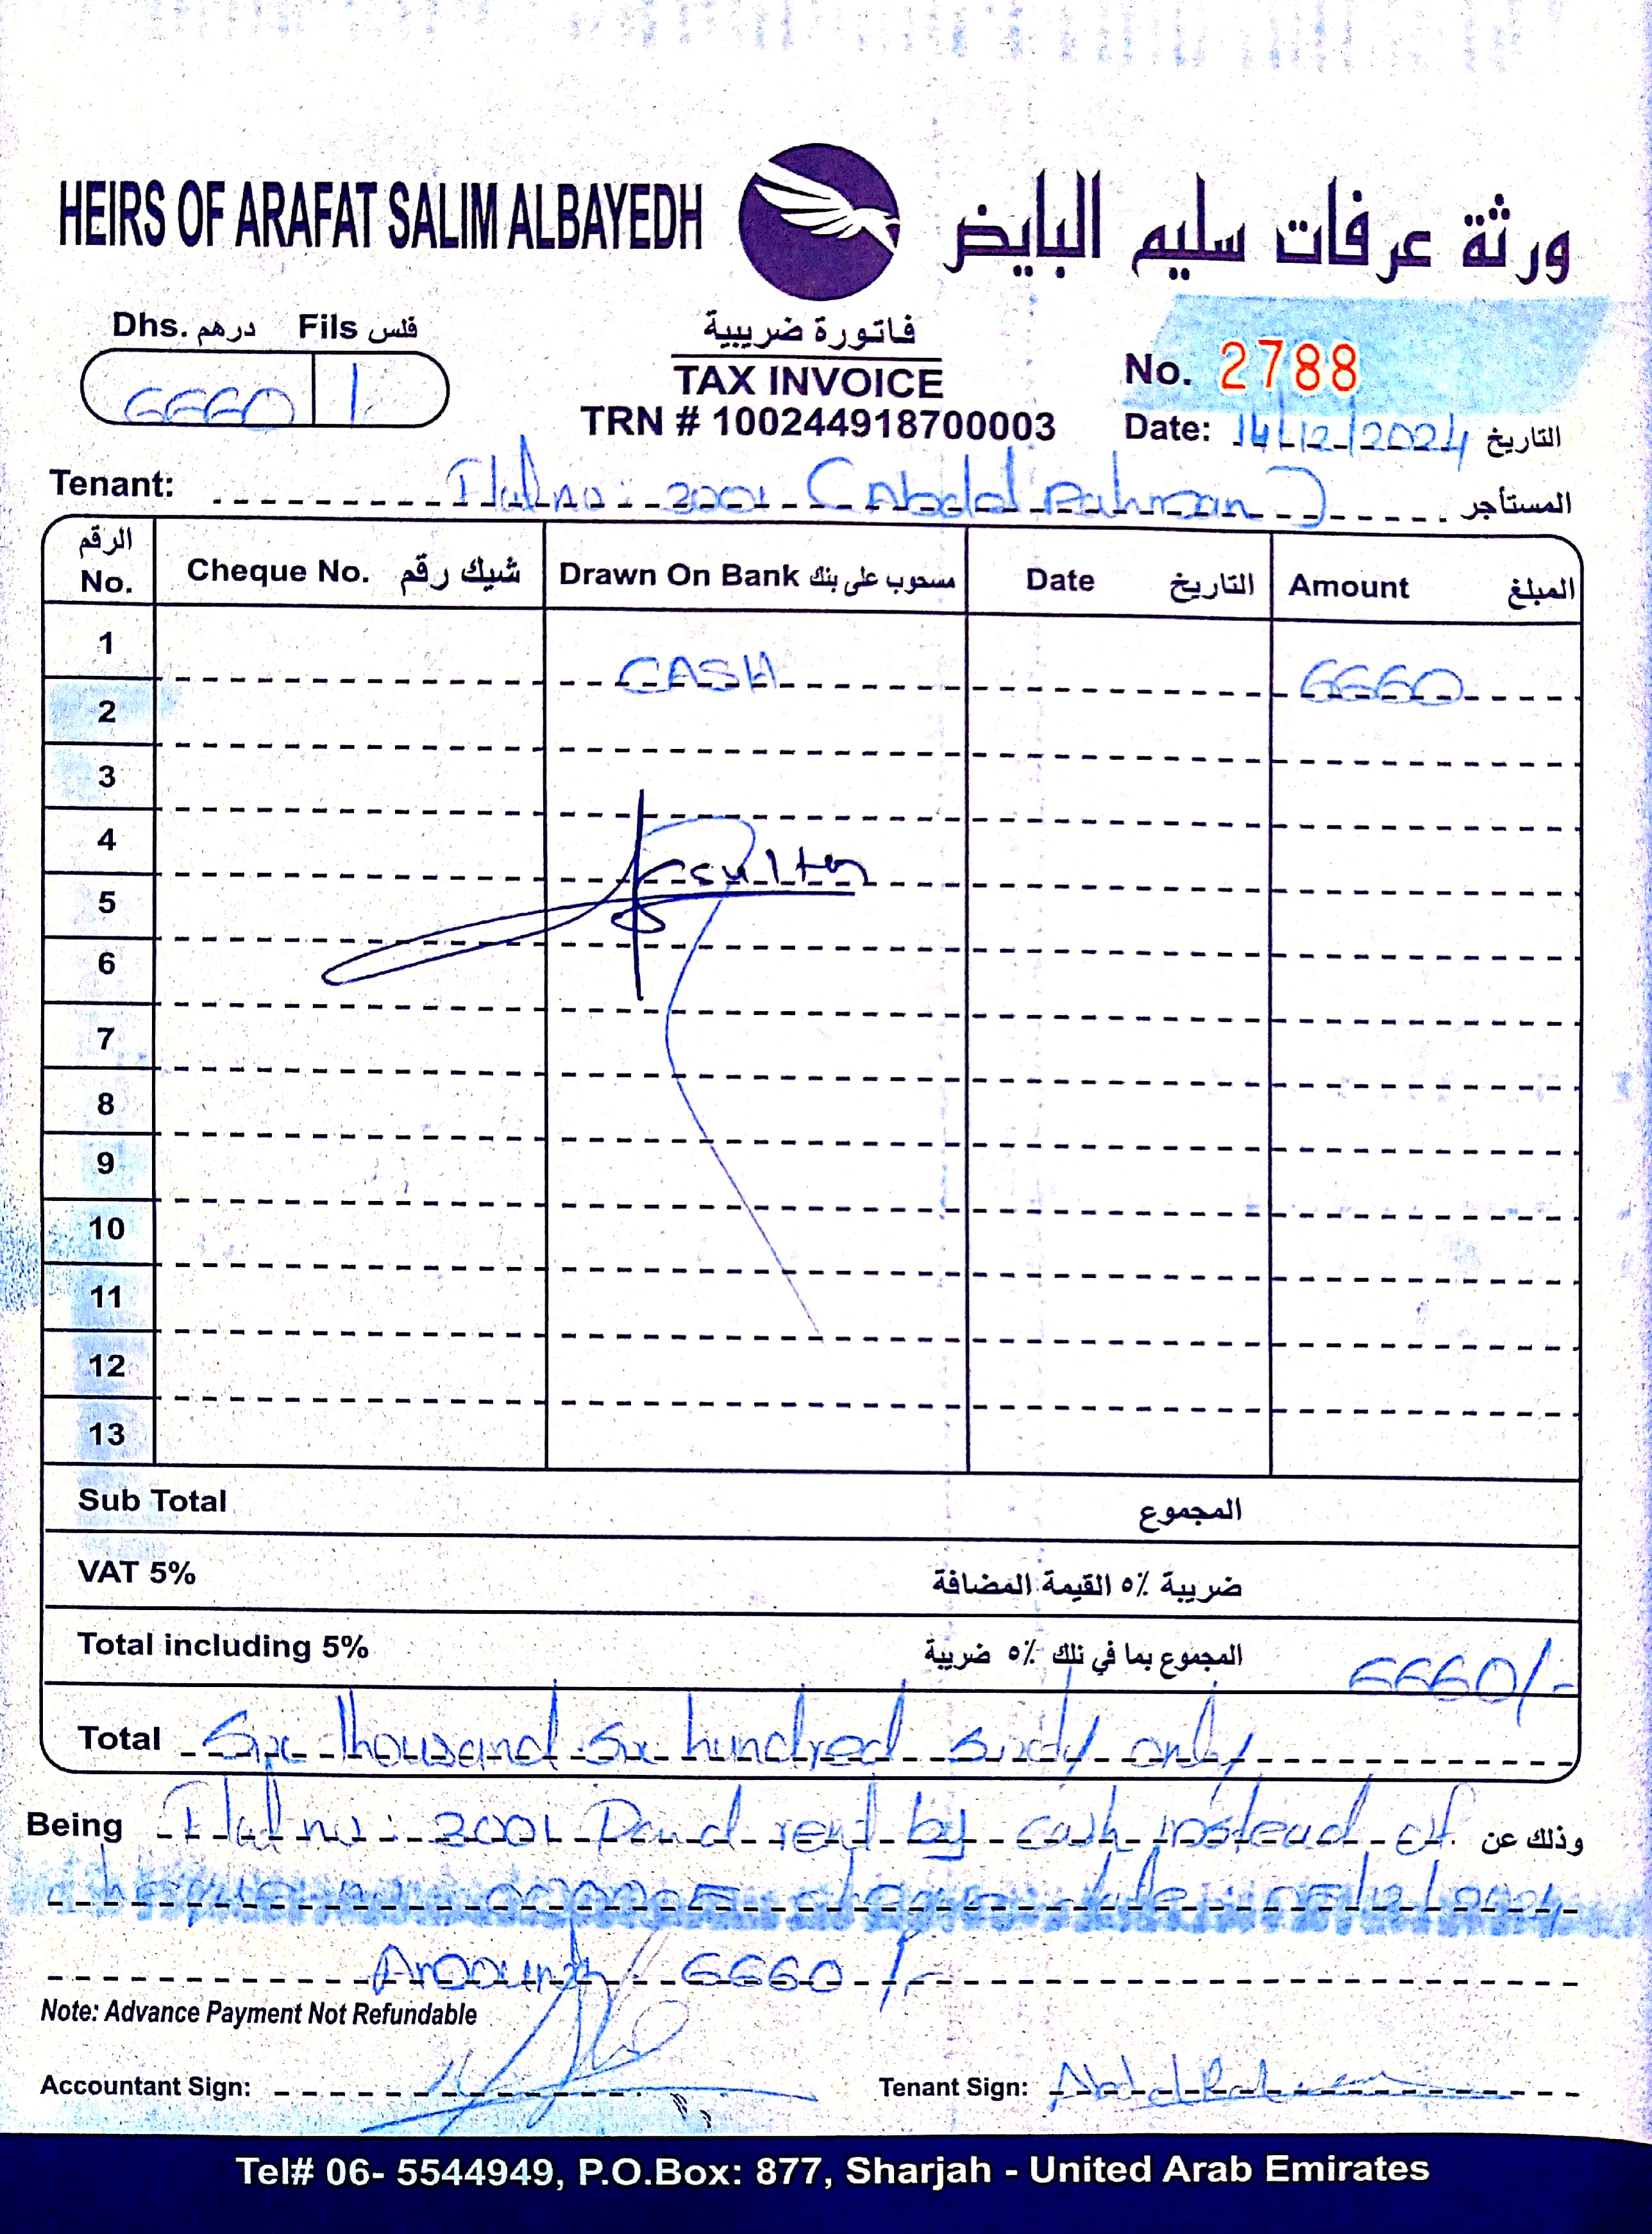 HEIRS OF ARAFAT SALIM ALBAYEDH ورثة عرفات سليم البايض
Dhs. درهم Fils فلس
6660 /-
فاتورة ضريبية
TAX INVOICE
TRN # 100244918700003
No. 2788
Date: 14/12/2024 التاريخ
Tenant: Flat no: 2001 (Abdol Rahman) المستأجر
الرقم No. Cheque No. شيك رقم Drawn On Bank مسحوب على بنك Date التاريخ Amount المبلغ
1 CASH 6660
2
3
4
5
6
7
8
9
10
11
12
13
Sub Total المجموع
VAT 5% ضريبة ٥٪ القيمة المضافة
Total including 5% المجموع بما في ذلك ٥٪ ضريبة 6660/-
Total Six thousand six hundred sixty only
Being Flat no: 2001 Paid rent by cash instead of وذلك عن
cheque no: 000005 cheque date: 05/12/2024
Amount 6660/-
Note: Advance Payment Not Refundable
Accountant Sign: Tenant Sign: Abdol Rahman
Tel# 06- 5544949, P.O.Box: 877, Sharjah - United Arab Emirates